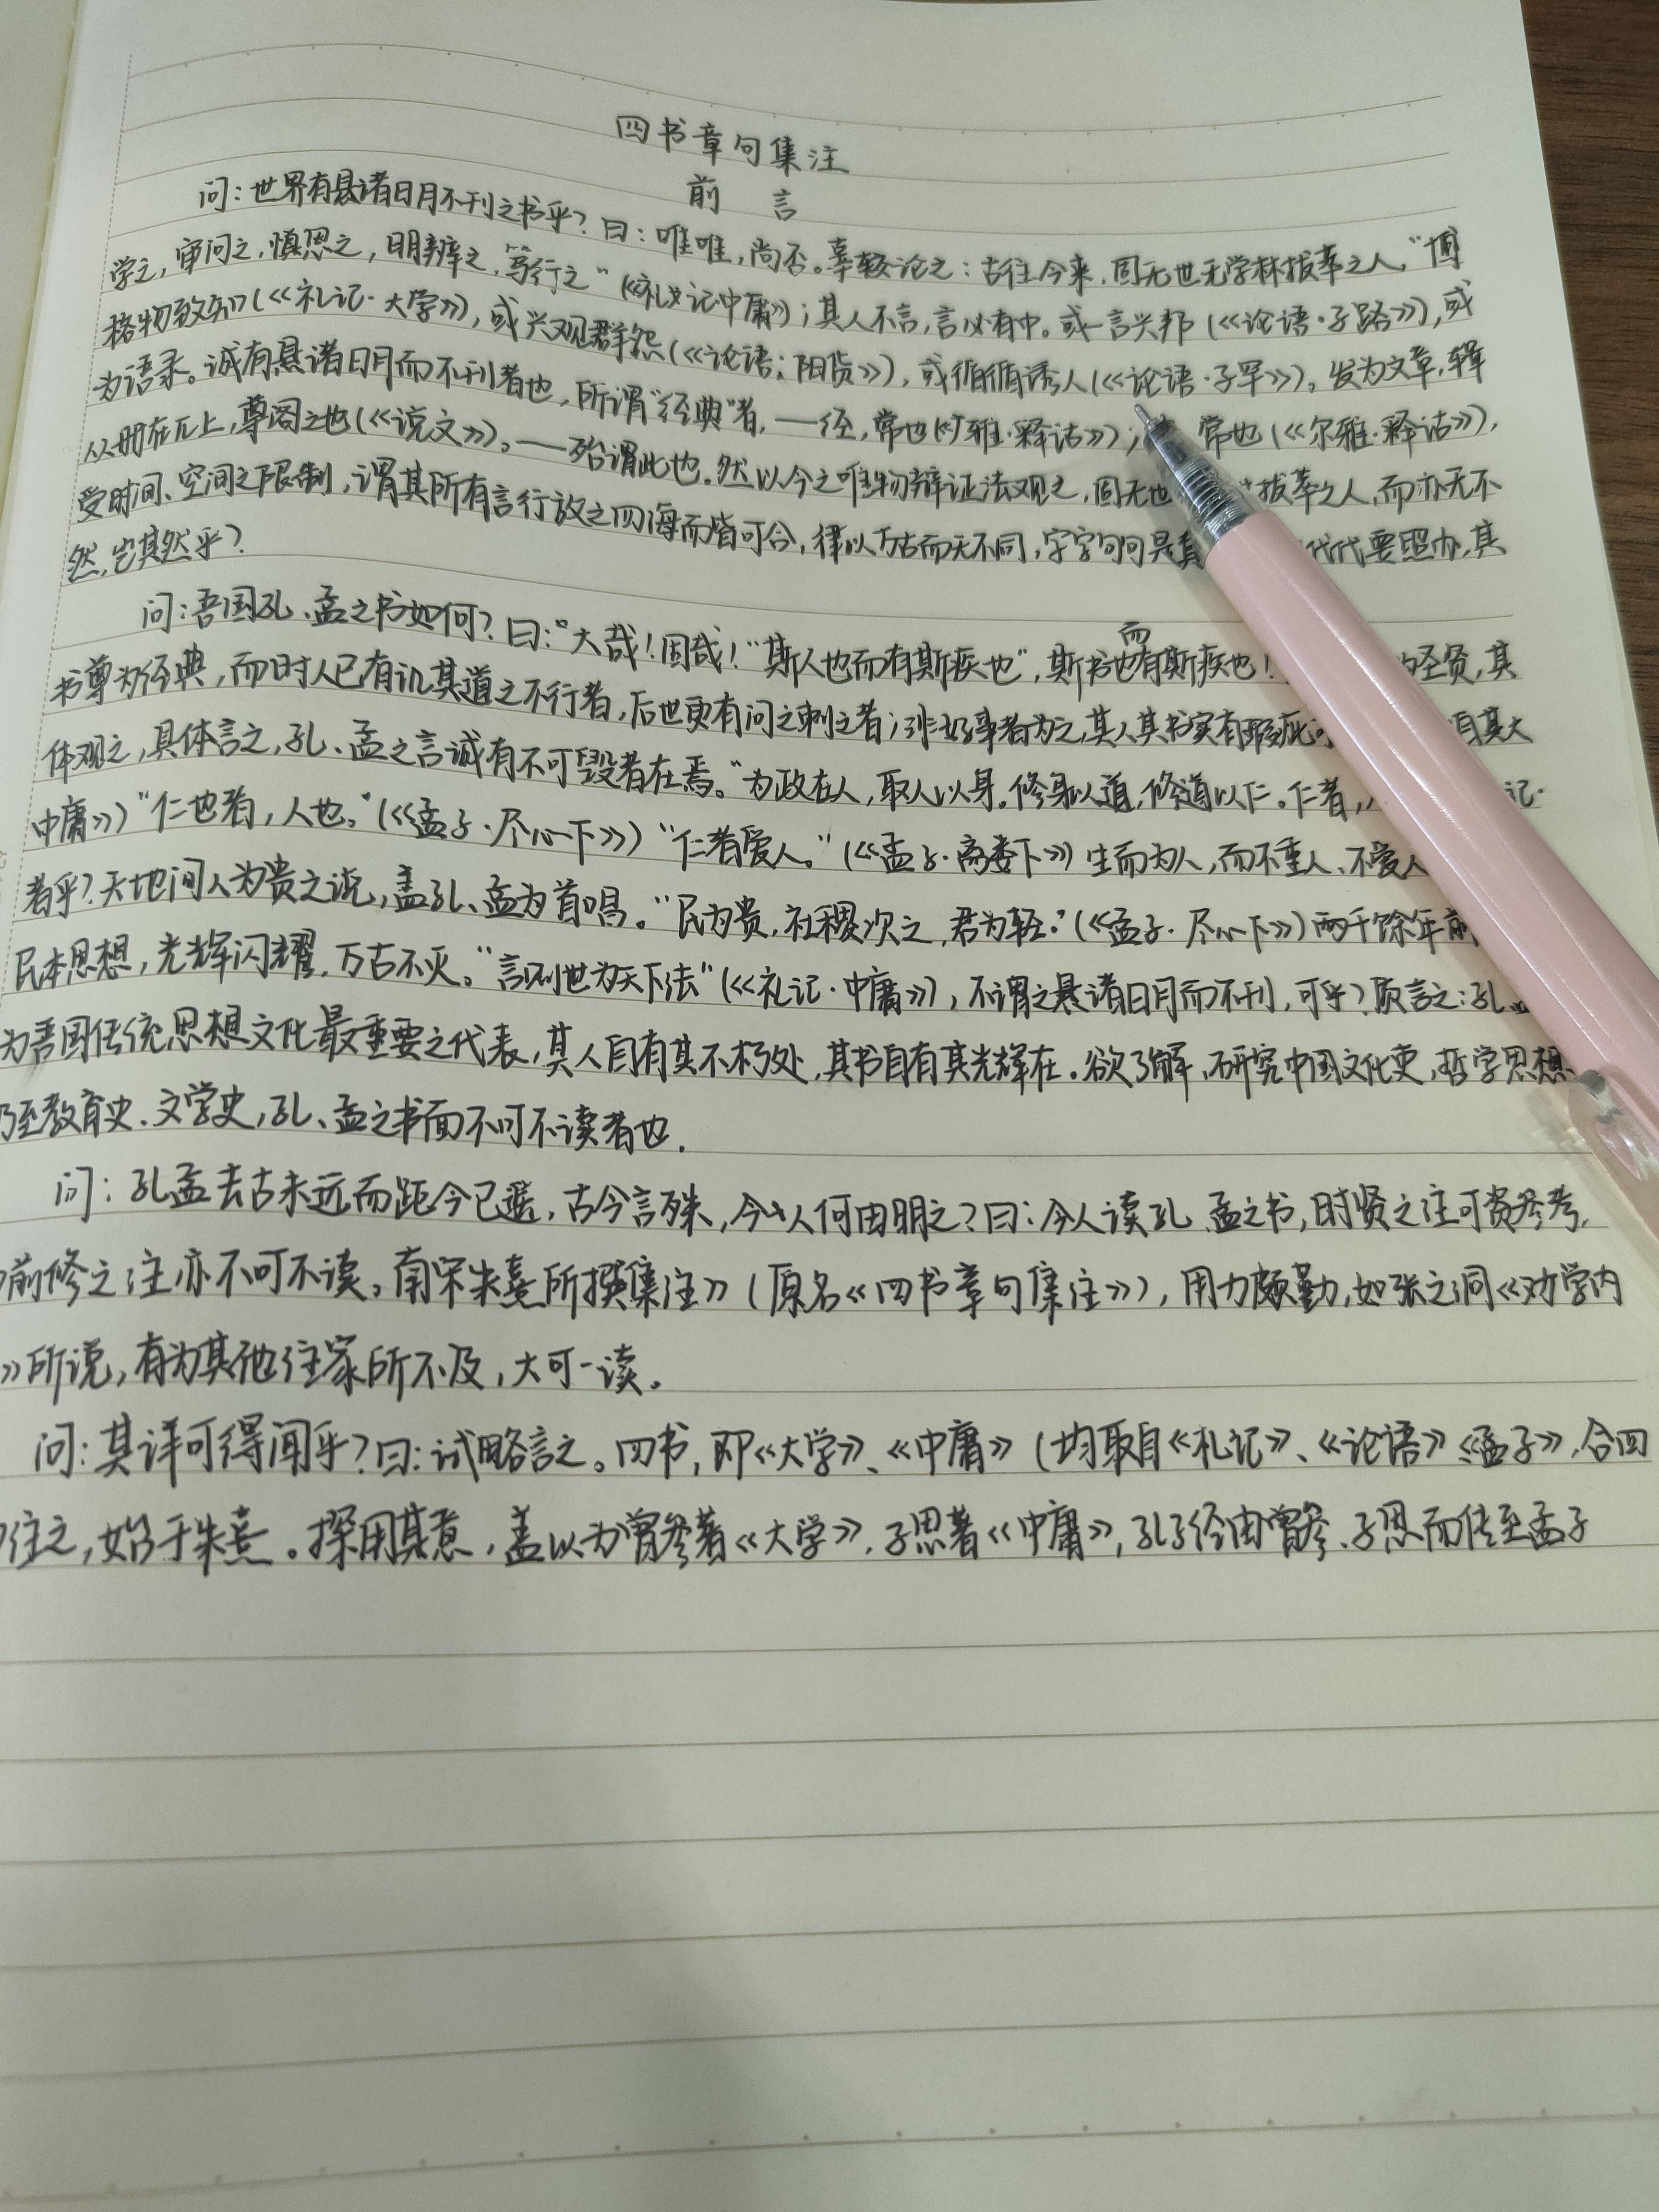 四书章句集注
前 言
问：世界有悬诸日月不刊之书乎？曰：唯唯，尚否。辜较论之：古往今来，固无世无学林拔萃之人，“博
学之，审问之，慎思之，明辨之，笃行之”（《礼记中庸》）；其人不言，言必有中。或一言兴邦（《论语·子路》），或
格物致知（《礼记·大学》），或兴观群怨（《论语；阳货》），或循循诱人（《论语·子罕》）。发为文章，辑
为语录。诚有悬诸日月而不刊者也，所谓“经典”者，——经，常也（《广雅·释诂》）； 常也（《尔雅·释诂》），
从册在丌上，尊阁之也（《说文》）。——殆谓此也。然以今之唯物辩证法观之，固无世 拔萃之人，而亦无不
受时间、空间之限制，谓其所有言行放之四海而皆可合，律以万古而无不同，字字句句是真 代代要照办，其
然，岂其然乎？
问：吾国孔、孟之书如何？曰：“大哉！固哉！“斯人也而有斯疾也”，斯书也而有斯疾也！ 圣贤，其
书尊为经典，而时人已有讥其道之不行者，后世更有问之刺之者；非好事者为之，其人其书实有瑕疵 其大
体观之，具体言之，孔、孟之言诚有不可毁者在焉。“为政在人，取人以身，修身以道，修道以仁。仁者， 记·
中庸》）“仁也者，人也。”（《孟子·尽心下》）“仁者爱人。”（《孟子·离娄下》）生而为人，而不重人、不爱人
者乎？天地间人为贵之说，盖孔、孟为首唱。“民为贵，社稷次之，君为轻。”（《孟子·尽心下》）两千馀年前
民本思想，光辉闪耀，万古不灭。“言而世为天下法”（《礼记·中庸》），不谓之悬诸日月而不刊，可乎？质言之：孔、
为吾国传统思想文化最重要之代表，其人自有其不朽处，其书自有其光辉在。欲了解、研究中国文化史，哲学思想
乃至教育史、文学史，孔、孟之书而不可不读者也。
问：孔孟去古未远而距今已遥，古今言殊，今人何由明之？曰：今人读孔、孟之书，时贤之注可资参考，
前修之注亦不可不读。南宋朱熹所撰集注》（原名《四书章句集注》），用力颇勤，如张之洞《劝学内
》所说，有为其他注家所不及，大可一读。
问：其详可得闻乎？曰：试略言之。四书，即《大学》、《中庸》（均取自《礼记》、《论语》《孟子》，合四
注之，始于朱熹。探用其意，盖以为曾参著《大学》，子思著《中庸》，孔子经由曾参、子思而传至孟子